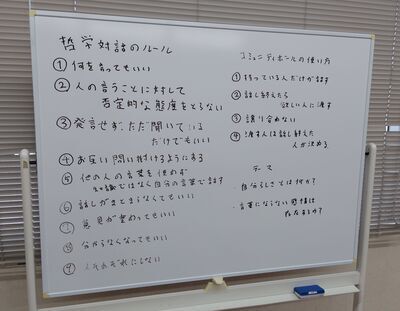 哲学対話のルール
①何を言ってもいい
②人の言うことに対して
否定的な態度をとらない
③発言せず、ただ聞いている
だけでもいい
④お互い問い掛けるようにする
⑤他の人の言葉を使わず
知識ではなく自分の言葉で話す
⑥話しがまとまらなくてもいい
⑦意見が変わってもいい
⑧分からなくなってもいい
⑨人それぞれにしない
コミュニティボールの使い方
①持っている人だけが話す
②話し終えたら
欲しい人に渡す
③譲り合わない
④渡す人は話し終えた
人が決める
テーマ
・自分らしさとは何か?
・言葉にならない感情は
存在するか?